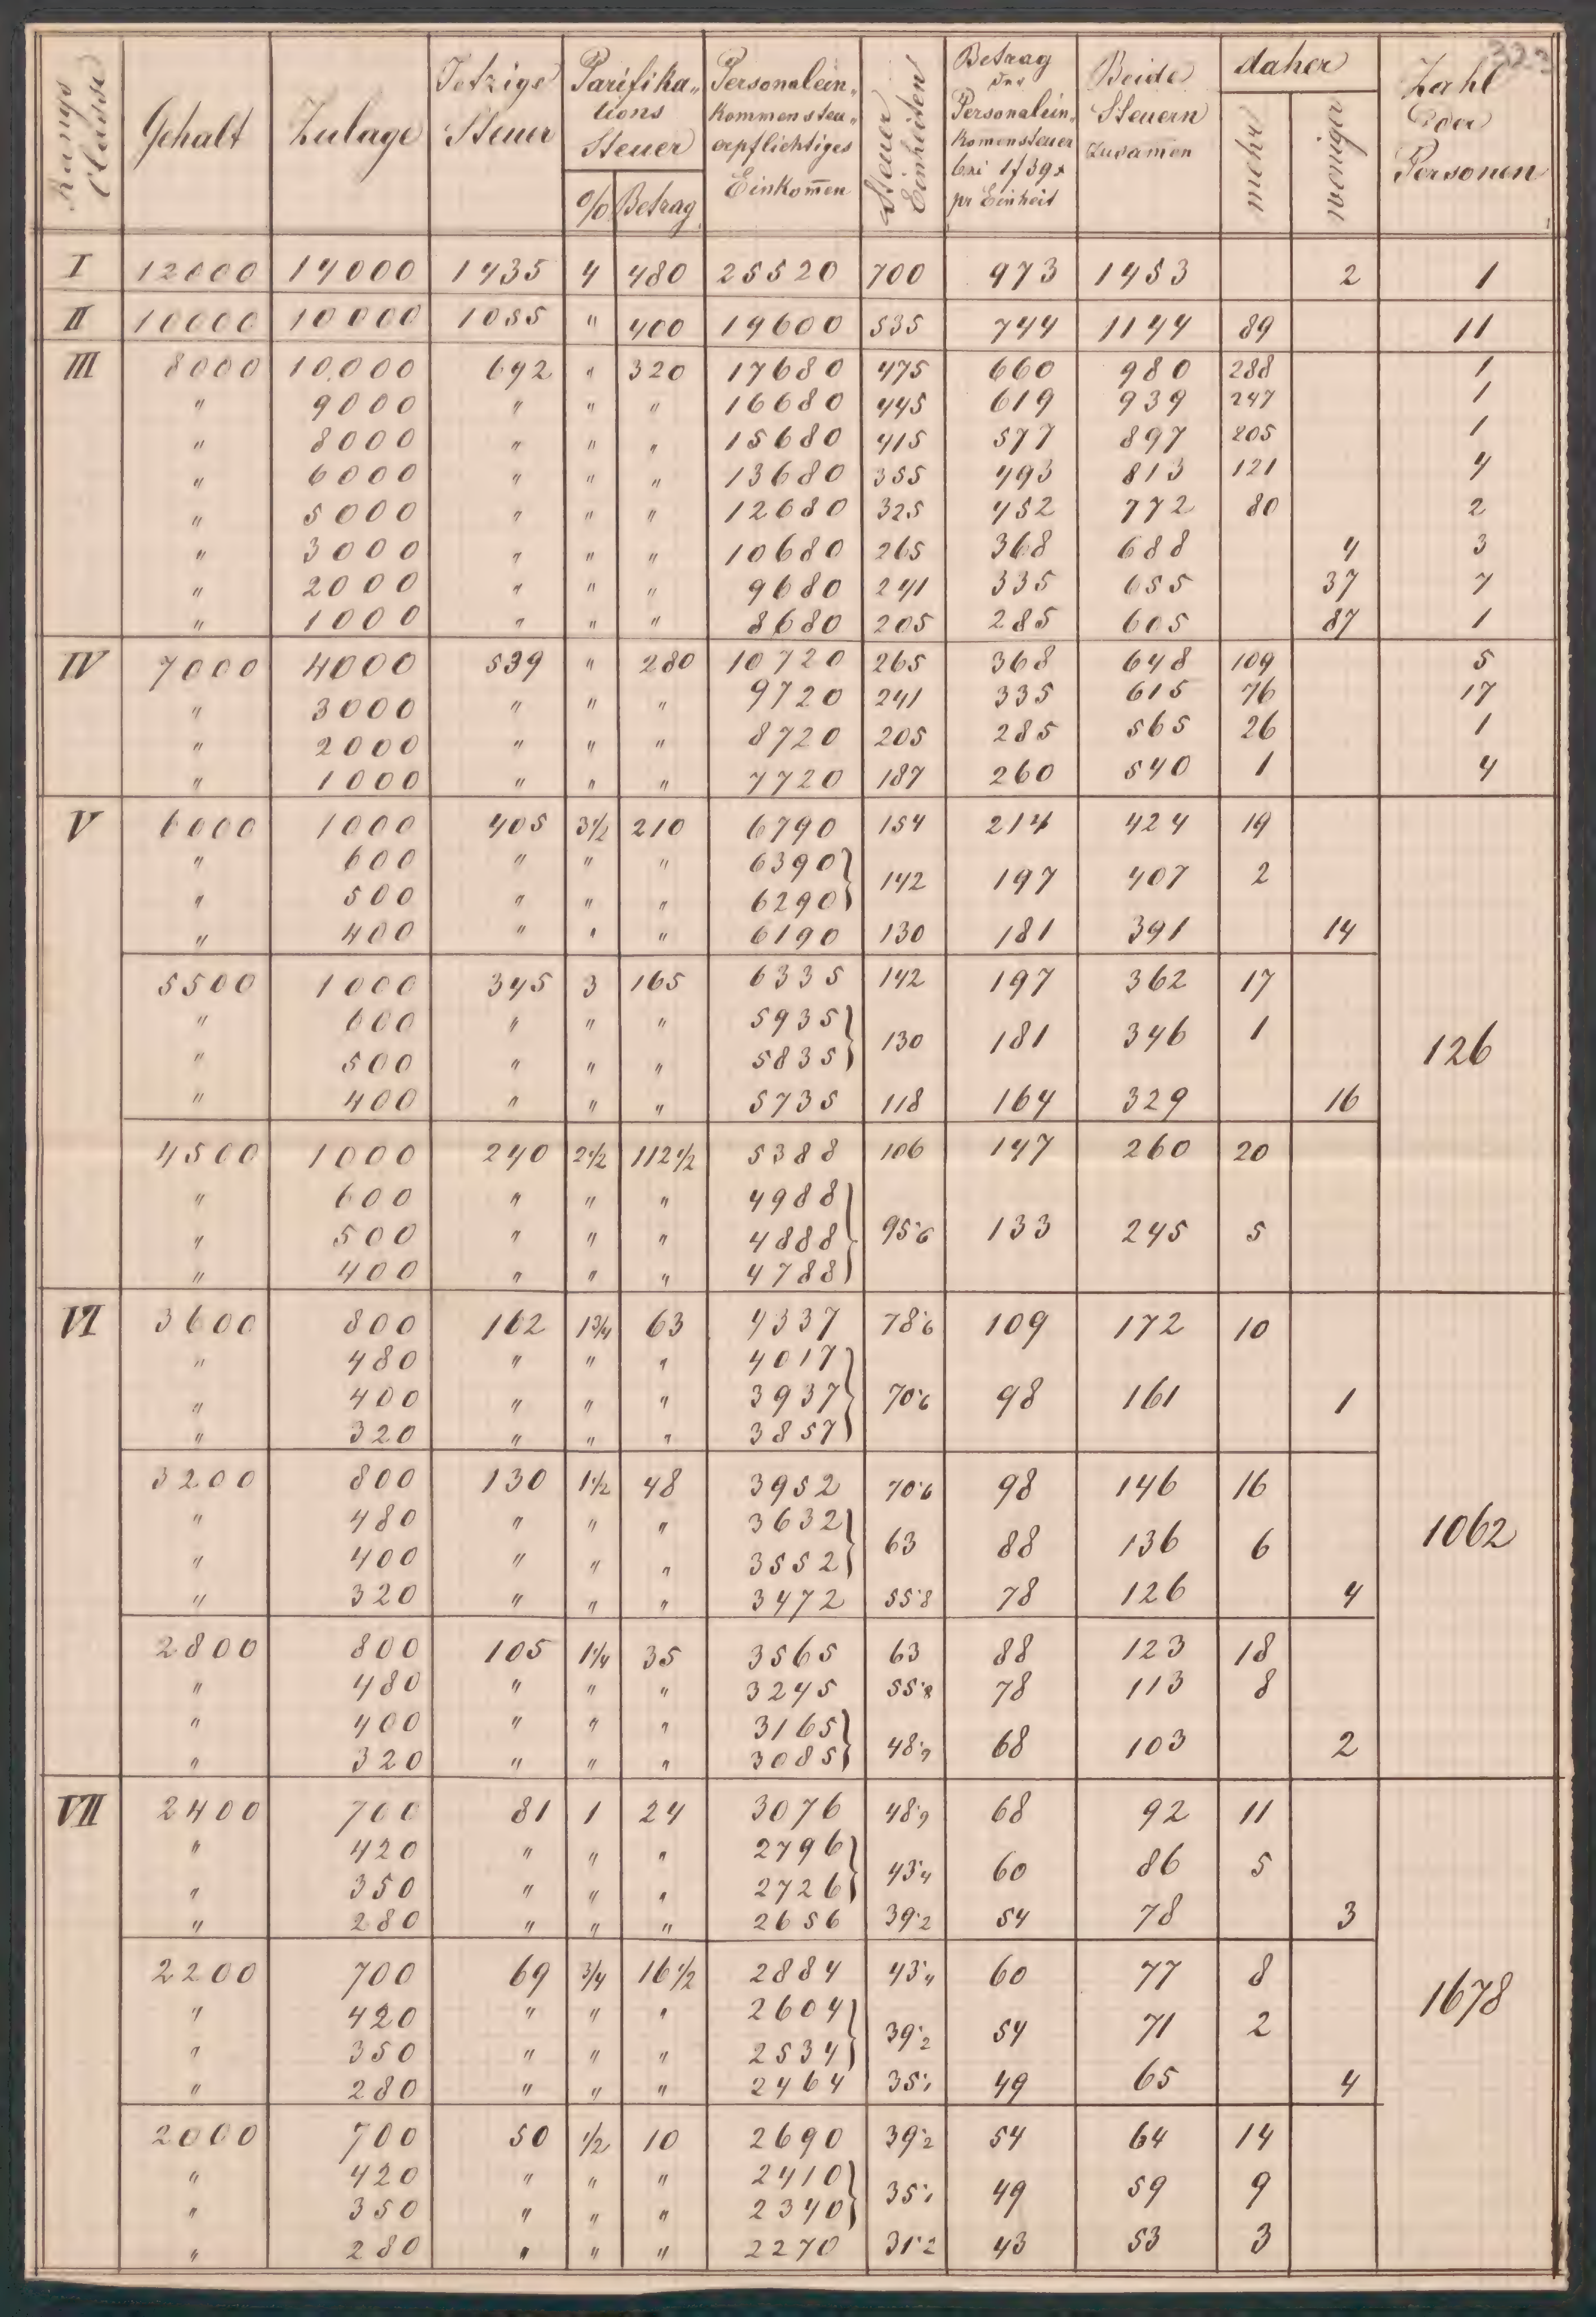 323
Rangs Classe | Gehalt | Zulage | Jetzige Steuer | Parifikations Steuer % | Betrag | Personaleinkommensteuerpflichtiges Einkom̄en | Steuer Einheiten | Betrag der Personaleinkom̄ensteuer bei 1f 39x pr Einheit | Beide Steuern zusam̄en | daher mehr | weniger | Zahl der Personen
I 12000 14000 1435 4 480 25520 700 973 1453 2 1
II 10000 10000 1055 " 400 19600 535 744 1144 89 11
III 8000 10,000 692 " 320 17680 475 660 980 288 1
" 9000 " " " 16680 445 619 939 247 1
" 8000 " " " 15680 415 577 897 205 1
" 6000 " " " 13680 355 493 813 121 4
" 5000 " " " 12680 325 452 772 80 2
" 3000 " " " 10680 265 368 688 4 3
" 2000 " " " 9680 241 335 655 37 7
" 1000 " " " 8680 205 285 605 87 1
IV 7000 4000 539 " 280 10720 265 368 648 109 5
" 3000 " " " 9720 241 335 615 76 17
" 2000 " " " 8720 205 285 565 26 1
" 1000 " " " 7720 187 260 540 1 4
V 6000 1000 405 3½ 210 6790 154 214 424 19
" 600 " " " 6390
142 197 407 2
" 500 " " " 6290
" 400 " " " 6190 130 181 391 14
5500 1000 345 3 165 6335 142 197 362 17
" 600 " " " 5935
130 181 346 1 126
" 500 " " " 5835
" 400 " " " 5735 118 164 329 16
4500 1000 240 2½ 112½ 5388 106 147 260 20
" 600 " " " 4988
" 500 " " " 4888 95·6 133 245 5
" 400 " " " 4788
VI 3600 800 162 1¾ 63 4337 78·6 109 172 10
" 480 " " " 4017
" 400 " " " 3937 70·6 98 161 1
" 320 " " " 3857
3200 800 130 1½ 48 3952 70·6 98 146 16
" 480 " " " 3632
63 88 136 6 1062
" 400 " " " 3552
" 320 " " " 3472 55·8 78 126 4
2800 800 105 1¼ 35 3565 63 88 123 18
" 480 " " " 3245 55·8 78 113 8
" 400 " " " 3165
48·9 68 103 2
" 320 " " " 3085
VII 2400 700 81 1 24 3076 48·9 68 92 11
" 420 " " " 2796
43·4 60 86 5
" 350 " " " 2726
" 280 " " " 2656 39·2 54 78 3
2200 700 69 ¾ 16½ 2884 43·4 60 77 8
" 420 " " " 2604
39·2 54 71 2 1678
" 350 " " " 2534
" 280 " " " 2464 35·1 49 65 4
2000 700 50 ½ 10 2690 39·2 54 64 14
" 420 " " " 2410
35·1 49 59 9
" 350 " " " 2340
" 280 " " " 2270 31·2 43 53 3